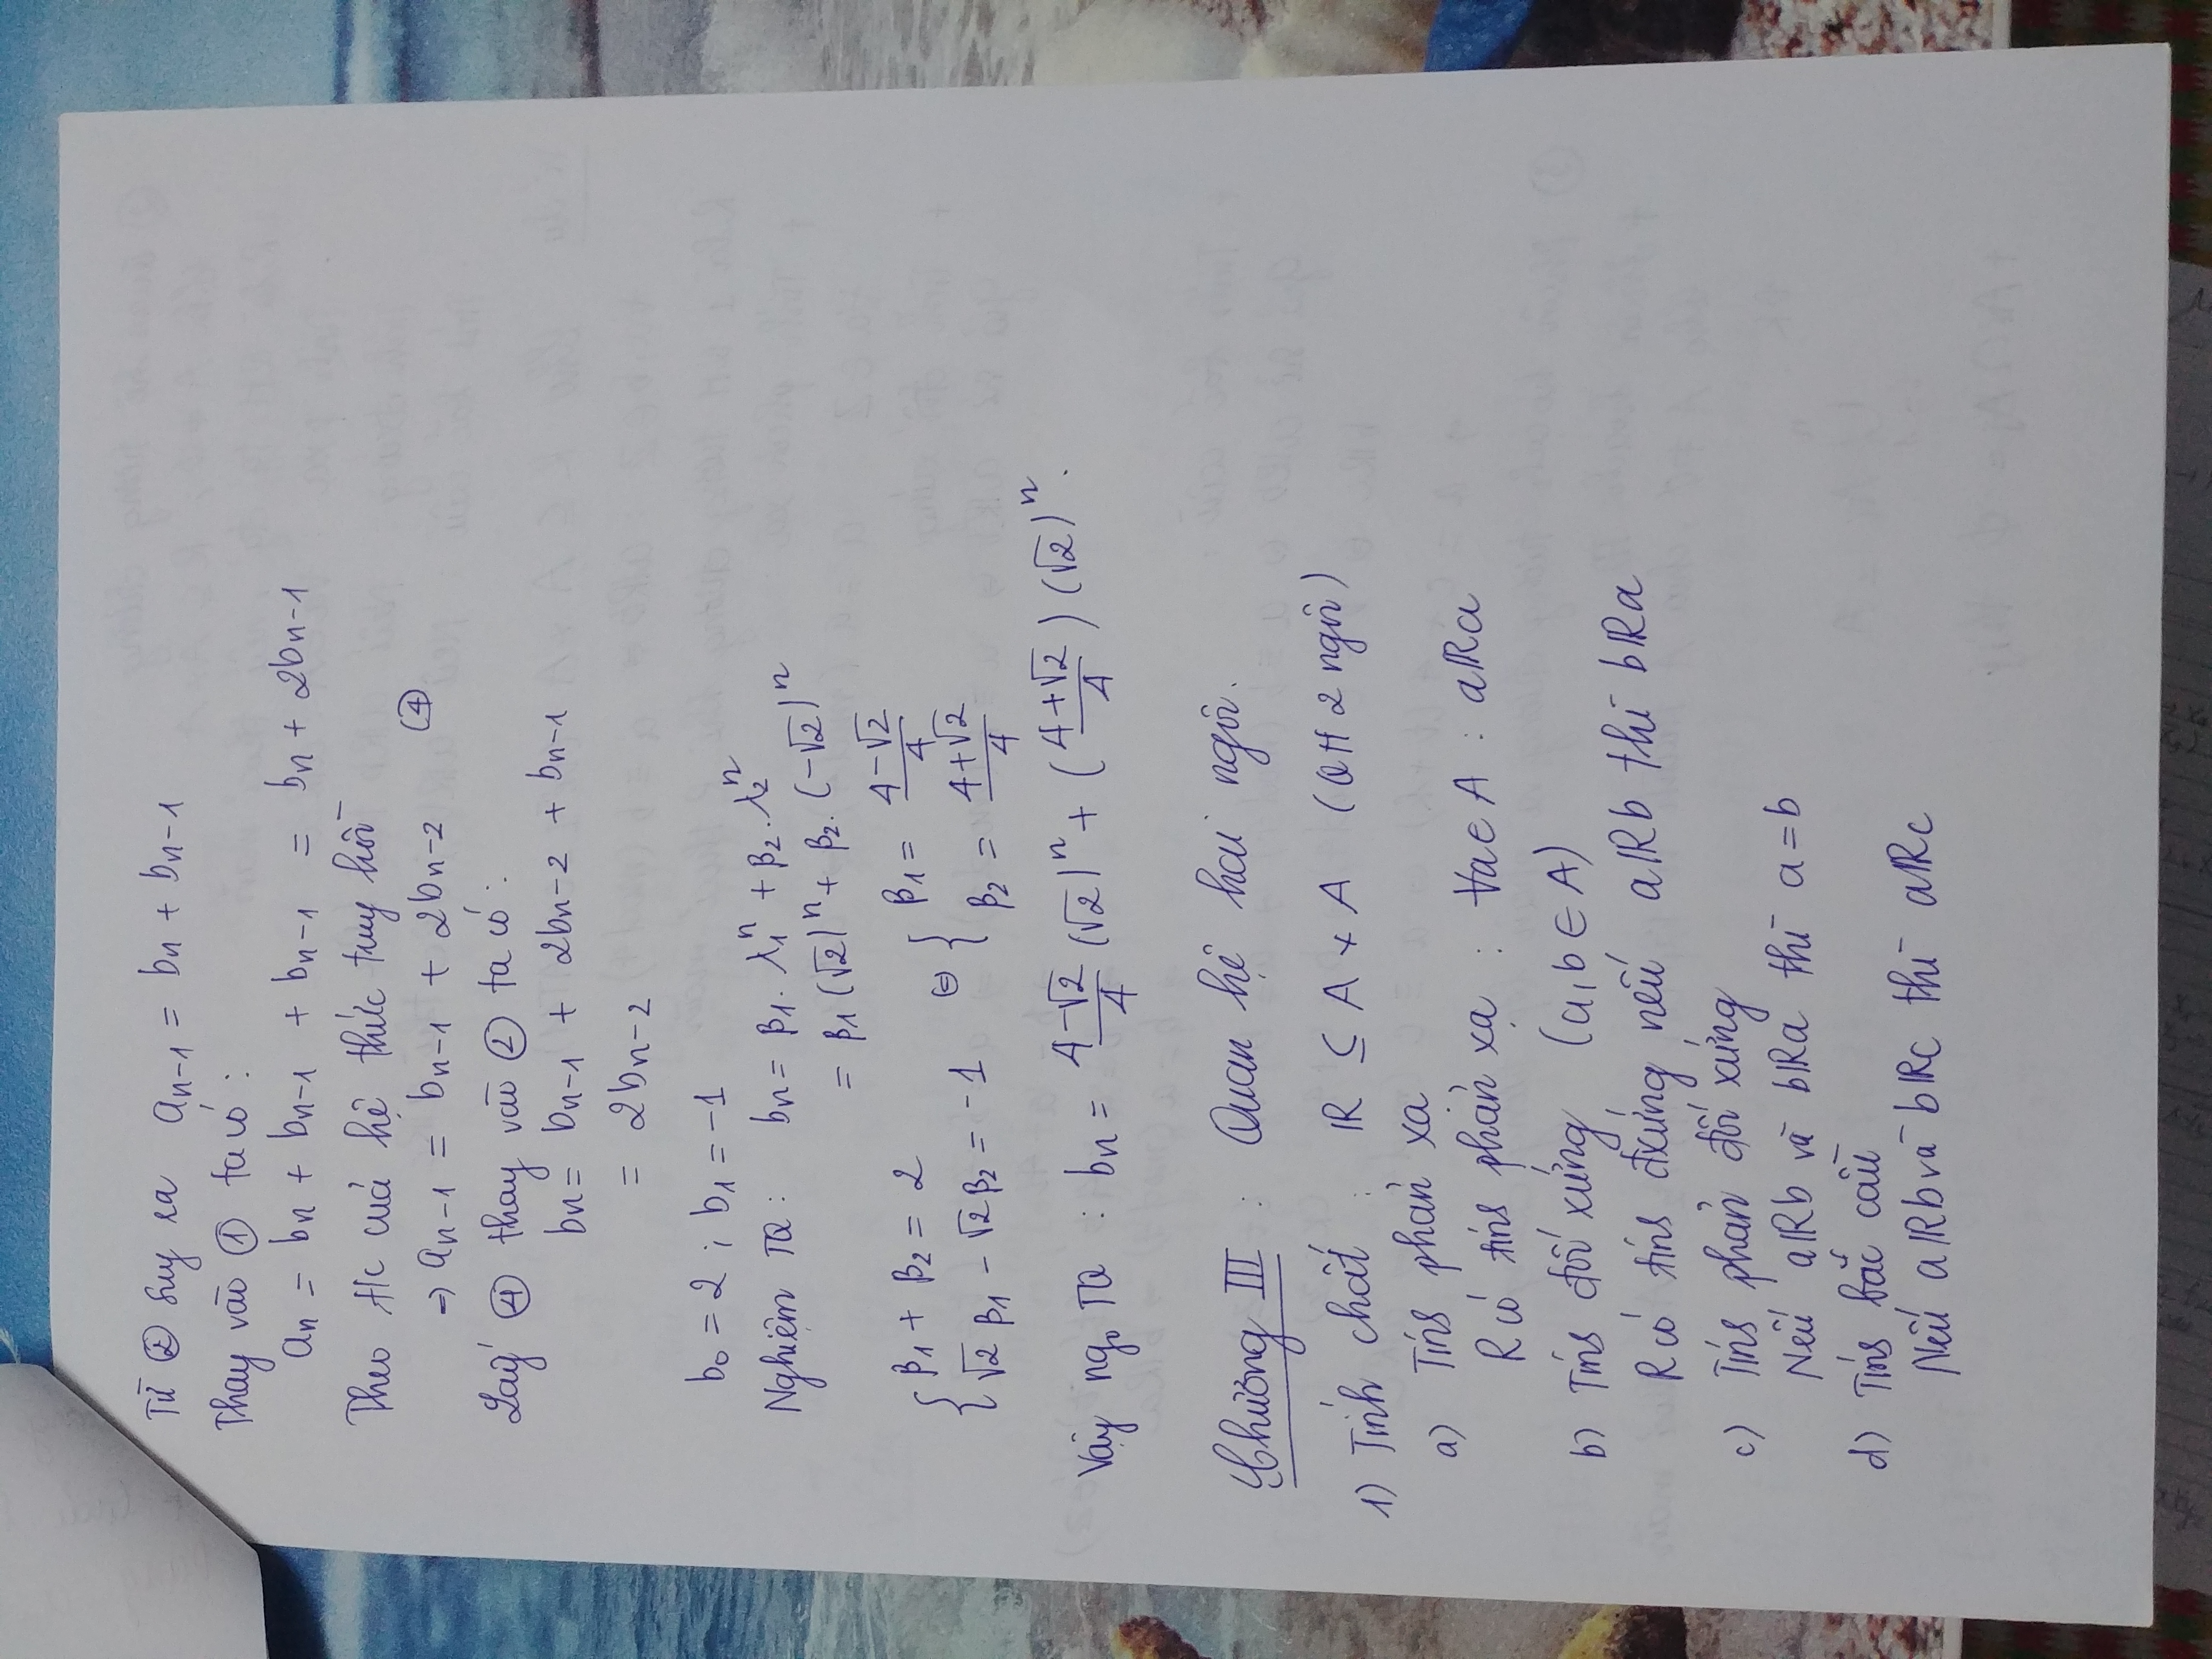 Từ ② suy ra a_{n-1} = b_n + b_{n-1}
Thay vào ① ta có :
a_n = b_n + b_{n-1} + b_{n-1} = b_n + 2b_{n-1}
Theo t/c cuả hệ thức truy hồi
⇒ a_{n-1} = b_{n-1} + 2b_{n-2} ④
Lấy ④ thay vào ② ta có :
b_n = b_{n-1} + 2b_{n-2} + b_{n-1}
= 2b_{n-2}
b_0 = 2 ; b_1 = -1
Nghiệm TQ : b_n = β_1 . λ_1^n + β_2 . λ_2^n
= β_1 (√2)^n + β_2 . (-√2)^n
{ β_1 + β_2 = 2 ; √2 β_1 - √2 β_2 = -1 ⇔ { β_1 = (4-√2)/4 ; β_2 = (4+√2)/4
Vậy ngo TQ : b_n = (4-√2)/4 (√2)^n + ((4+√2)/4) (√2)^n .
Chương III : Quan hệ hai ngôi.
1) Tính chất : R ⊆ A × A (QH 2 ngôi)
a) Tính phản xạ
R có tính phản xạ : ∀a ∈ A : aRa
b) Tính đối xứng (a,b ∈ A)
R có tính đxứng nếu aRb thì bRa
c) Tính phản đối xứng
Nếu aRb và bRa thì a = b
d) Tính bắc cầu
Nếu aRb và bRc thì aRc